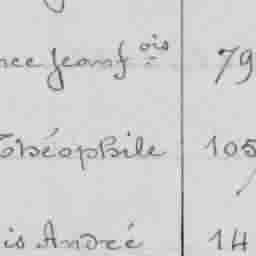 nce Jeanfois 79
Théophile 105
is André 14